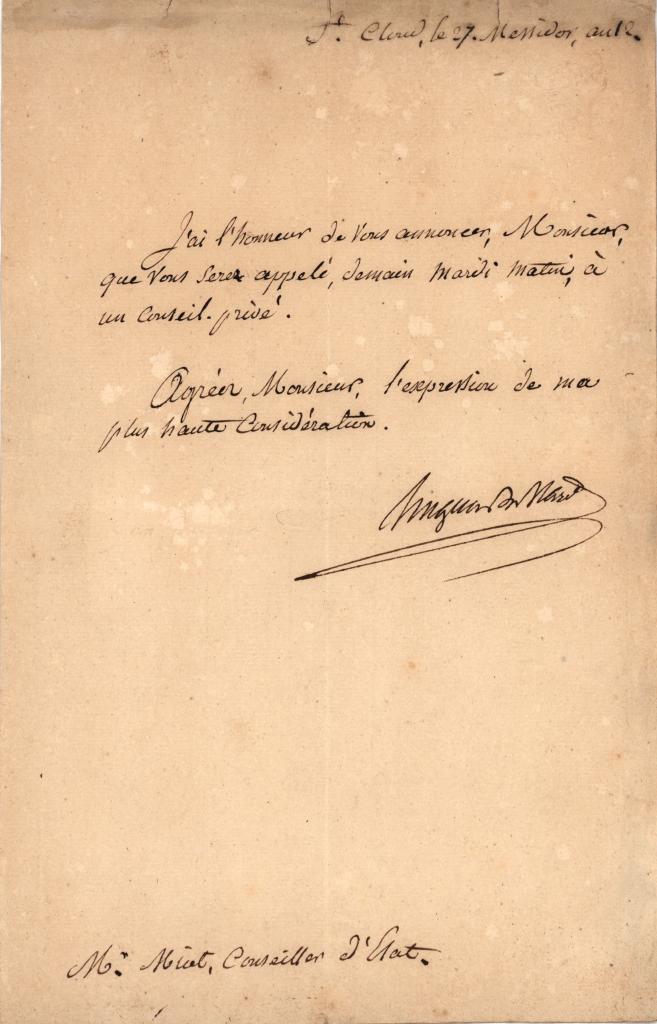 St. Cloud, le 27. Messidor, an 12.
J'ai l'honneur de Vous annoncer, Monsieur,
que Vous Serez appelé, demain mardi matin, à
un Conseil-privé.
Agréer, Monsieur, l'expression de ma
plus haute Considération.
Mr. Miot, Conseiller d'Etat.